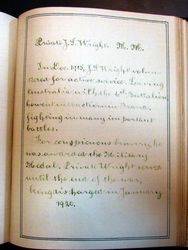 Private J.S. Wright. M.M.
In Dec. 1915, J.S. Wright volun-
teered for active service. Leaving
Australia with the 4th Battalion
he went into action in France,
fighting in many important
battles.
For conspicuous bravery he
was awarded the Military
Medal. Private Wright served
until the end of the war,
being discharged in January
1920.